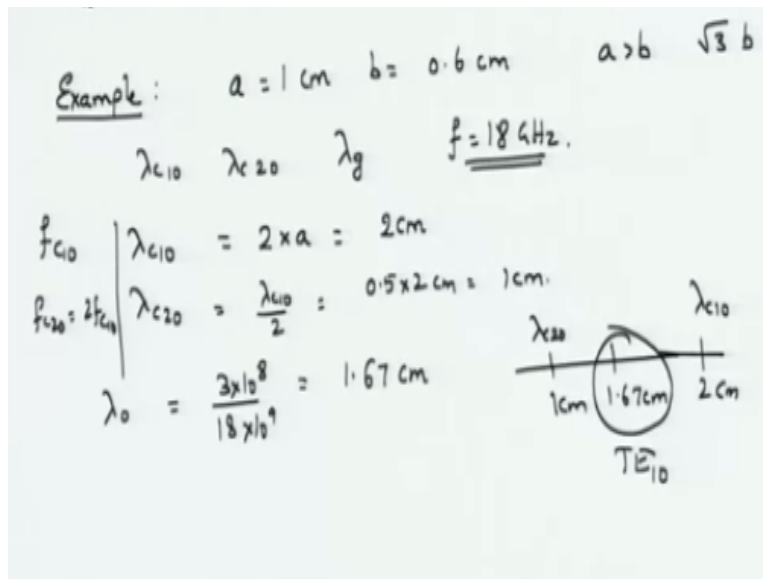 Example: a = 1 cm b = 0.6 cm a>b √3 b
λc10 λc20 λg f = 18 GHz.
fc10 | λc10 = 2 x a = 2cm
fc20 = 2fc10 | λc20 = λc10/2 = 0.5 x 2 cm = 1cm.
λ0 = 3x10^8/18x10^9 = 1.67 cm
λc20 λc10
1cm 1.67cm 2cm
TE10